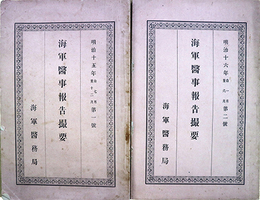 明治十六年
第二號
海軍醫事報告撮要
海軍醫務局
明治十五年
第一號
海軍醫事報告撮要
海軍醫務局